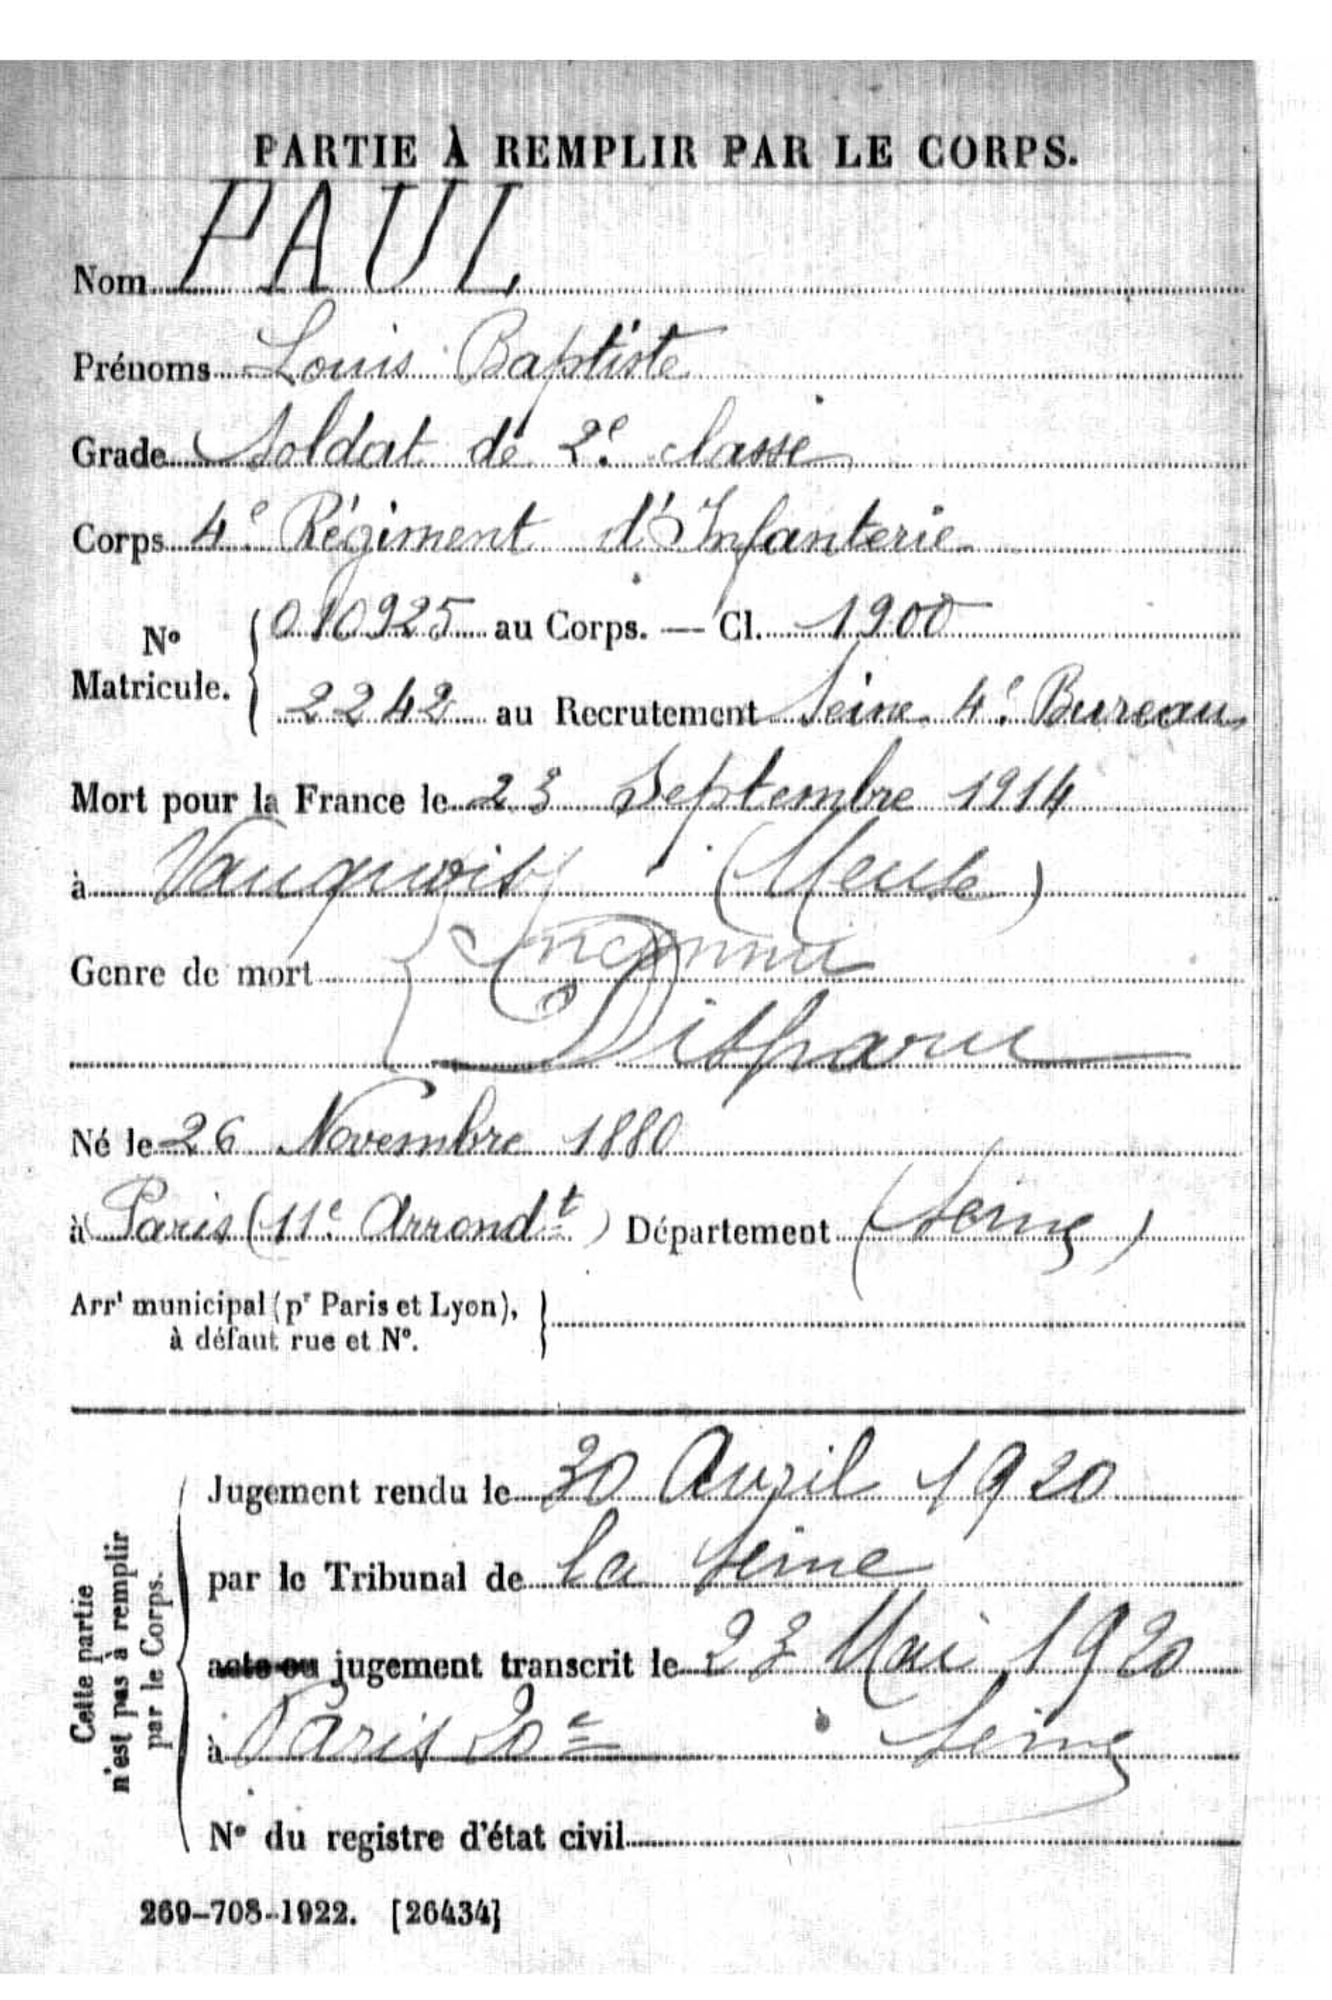 PARTIE À REMPLIR PAR LE CORPS.
Nom PAUL
Prénoms Louis Baptiste
Grade Soldat de 2e classe
Corps 4e Régiment d'Infanterie
No Matricule. { 010925 au Corps. — Cl. 1900
2242 au Recrutement Seine 4e Bureau
Mort pour la France le 23 Septembre 1914
à Vauquois (Meuse)
Genre de mort { Inconnu
Disparu
Né le 26 Novembre 1880
à Paris (11e Arrondt) Département (Seine)
Arrt municipal (pr Paris et Lyon), }
à défaut rue et No.
Cette partie
n'est pas à remplir
par le Corps.
Jugement rendu le 30 Avril 1920
par le Tribunal de la Seine
acte ou jugement transcrit le 23 Mai 1920
à Paris 20e Seine
No du registre d'état civil
269-708-1922. [26434]